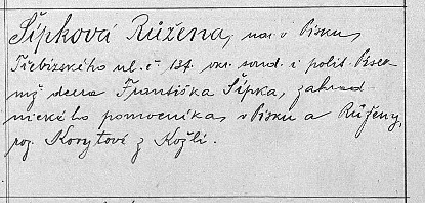 Šípková Růžena, nar. v Písku,
Třebízského ul. č. 134. okr. soud. i polit. Písec
mž dcera Františka Šípka, zahrad
nického pomocníka, v Písku a Růženy,
roz. Korytové z Kožlí.